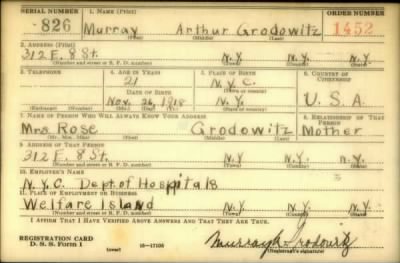 SERIAL NUMBER 1. NAME (Print) ORDER NUMBER
826 Murray Arthur Grodowitz 1452
(First) (Middle) (Last)
2. ADDRESS (Print)
312 E. 8 St. N.Y. N.Y.
(Number and street or R. F. D. number) (Town) (County) (State)
3. TELEPHONE 4. AGE IN YEARS 5. PLACE OF BIRTH 6. COUNTRY OF CITIZENSHIP
21 N.Y.C.
DATE OF BIRTH (Town or county)
Nov. 26, 1918 N.Y. U.S.A.
(Exchange) (Number) (Mo.) (Day) (Yr.) (State or country)
7. NAME OF PERSON WHO WILL ALWAYS KNOW YOUR ADDRESS 8. RELATIONSHIP OF THAT PERSON
Mrs. Rose Grodowitz Mother
(Mr., Mrs., Miss) (First) (Middle) (Last)
9. ADDRESS OF THAT PERSON
312 E. 8 St. N.Y. N.Y.
(Number and street or R. F. D. number) (Town) (County) (State)
10. EMPLOYER'S NAME
N.Y.C. Dept. of Hospitals
11. PLACE OF EMPLOYMENT OR BUSINESS
Welfare Island N.Y. N.Y.
(Number and street or R. F. D. number) (Town) (County) (State)
I AFFIRM THAT I HAVE VERIFIED ABOVE ANSWERS AND THAT THEY ARE TRUE.
REGISTRATION CARD
D. S. S. Form 1 (over) 16-17105 Murray A. Grodowitz
(Registrant's signature)